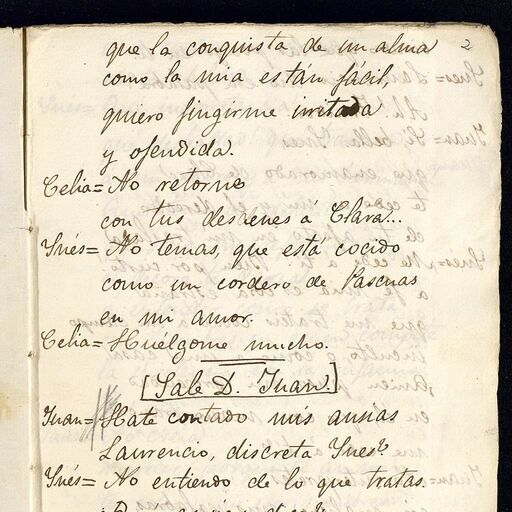 2
que la conquista de un alma
como la mia es tán fácil,
quiero fingirme irritada
y ofendida.
Celia= No retorne
con tus desdenes á Clara...
Ynés= No temas, que está cocido
como un cordero de Pascuas
en mi amor.
Celia= Huélgome mucho.
[Sale D. Juan.]
Juan= Hate contado mis ansias
Laurencio, discreta Ynes?
Ynés= No entiendo de lo que tratas.